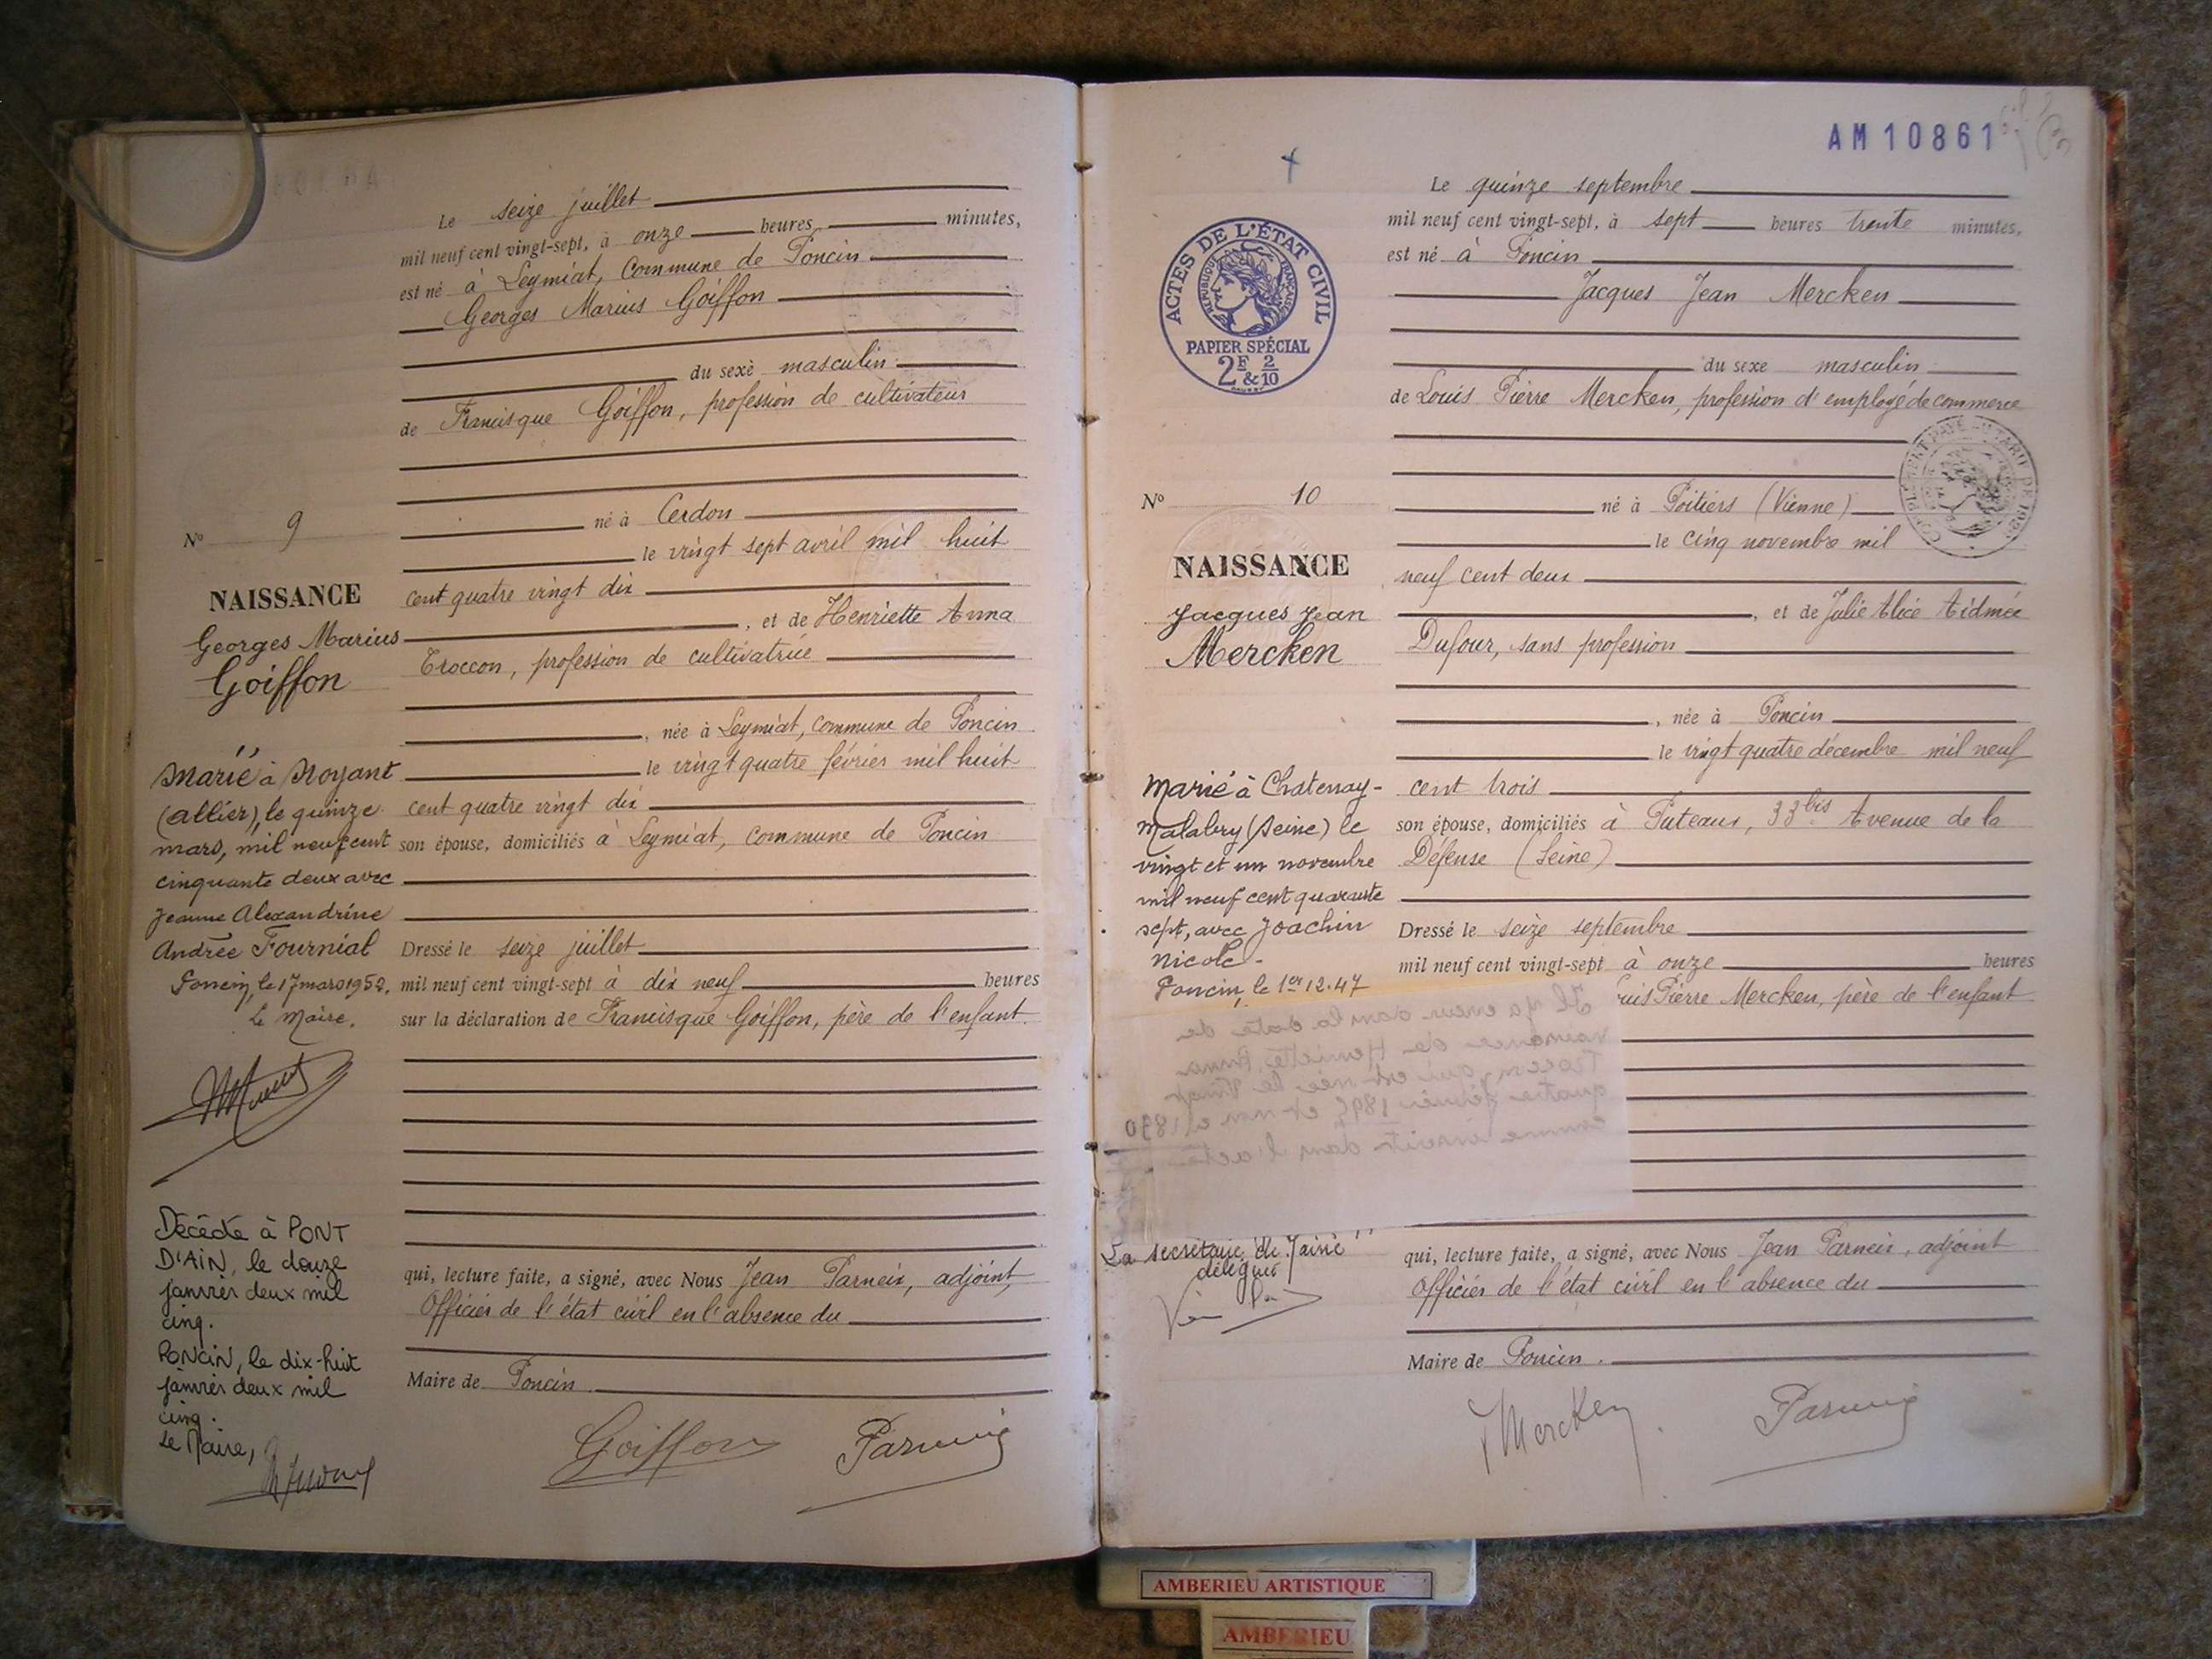 Le seize juillet
mil neuf cent vingt-sept, à onze heures minutes,
est né à Leymiat, Commune de Poncin
Georges Marius Goiffon
du sexe masculin
de Francisque Goiffon, profession de cultivateur
né à Cerdon
le vingt sept avril mil huit
cent quatre vingt dix
, et de Henriette Anna
Troccon, profession de cultivatrice
, née à Leymiat, commune de Poncin
le vingt quatre février mil huit
cent quatre vingt dix
son épouse, domiciliés à Leymiat, commune de Poncin
Dressé le seize juillet
mil neuf cent vingt-sept à dix neuf heures
sur la déclaration de Francisque Goiffon, père de l'enfant.
qui, lecture faite, a signé, avec Nous Jean Parneix, adjoint,
Officier de l'état civil en l'absence du
Maire de Poncin
Goiffon Parneix
N° 9
NAISSANCE
Georges Marius
Goiffon
Marié à Noyant
(Allier), le quinze
mars, mil neuf cent
cinquante deux avec
Jeanne Alexandrine
Andrée Fournial
Poncin, le 17 mars 1952,
Le Maire,
Décédé à PONT
D'AIN, le douze
janvier deux mil
cinq.
PONCIN, le dix-huit
janvier deux mil
cinq.
Le Maire,
AM 10861
ACTES DE L'ÉTAT CIVIL
RÉPUBLIQUE FRANÇAISE
PAPIER SPÉCIAL
2F & 2/10
Le quinze septembre
mil neuf cent vingt-sept, à sept heures trente minutes,
est né à Poncin
Jacques Jean Mercken
du sexe masculin
de Louis Pierre Mercken, profession d'employé de commerce
né à Poitiers (Vienne)
le cinq novembre mil
neuf cent deux
, et de Julie Alice Aidmée
Dufour, sans profession
, née à Poncin
le vingt quatre décembre mil neuf
cent trois
son épouse, domiciliés à Puteaux, 33 bis Avenue de la
Défense (Seine)
Dressé le seize septembre
mil neuf cent vingt-sept à onze heures
uis Pierre Mercken, père de l'enfant
qui, lecture faite, a signé, avec Nous Jean Parneix, adjoint
Officier de l'état civil en l'absence du
Maire de Poncin.
Mercken Parneix
N° 10
NAISSANCE
Jacques Jean
Mercken
Marié à Chatenay-
Malabry (Seine) le
vingt et un novembre
mil neuf cent quarante
sept, avec Joachin
Nicole -
Poncin, le 1er 12.47
Il y a erreur dans la date de
naissance de Henriette Anna
Trocon qui est née le Vingt
quatre février 1895 et non 1890
comme inscrit dans l'acte
La secrétaire de Mairie
délégué
AMBERIEU ARTISTIQUE
AMBERIEU